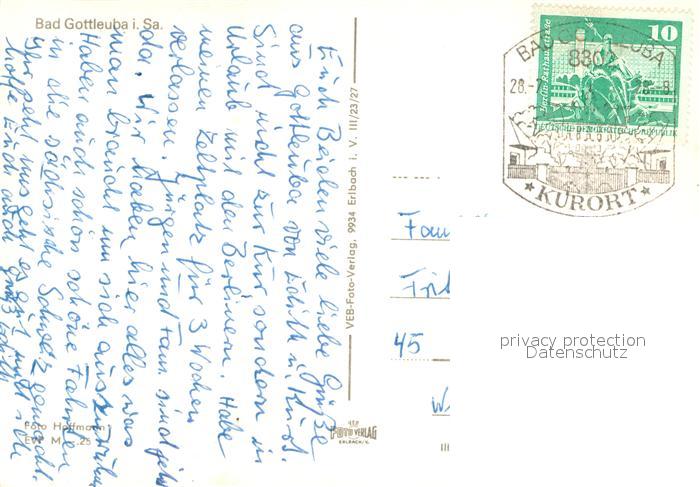 Bad Gottleuba i. Sa.
Euch Beiden viele liebe Grüße
aus Gottleuba von Edith u. Kurt.
Sind nicht zur Kur sondern in
Urlaub mit den Berlinern. Habe
meinen Zeltplatz für 3 Wochen
verlassen. Jürgen und Fam. sind jetzt
da. Wir haben hier alles was
man braucht um sich auszuruhen
Haben auch schon schöne Fahrten
in die sächsische Schweiz gemacht.
uns geht es gut
hoffe Euch auch Gruß Edith
Foto Hoffmann
VEB-Foto-Verlag, 9934 Erlbach i. V. III/23/27
FOTO VERLAG
ERLBACH/V.
III
10
Berlin, Rathausstraße
DEUTSCHE DEMOKRATISCHE REPUBLIK
BAD GOTTLEUBA
8302
28.-7
★ KURORT ★
Fam
Frit
45
W
privacy protection
Datenschutz